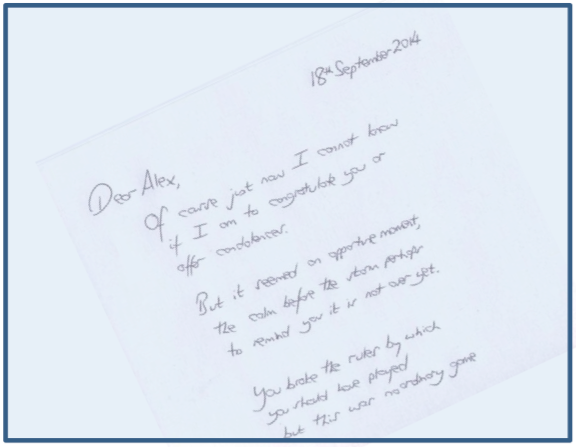 18th September 2014
Dear Alex,
Of course just now I cannot know
if I am to congratulate you or
offer condolences.
But it seemed an opportune moment,
the calm before the storm perhaps
to remind you it is not over yet.
You broke the rules by which
you should have played
but this was no ordinary game